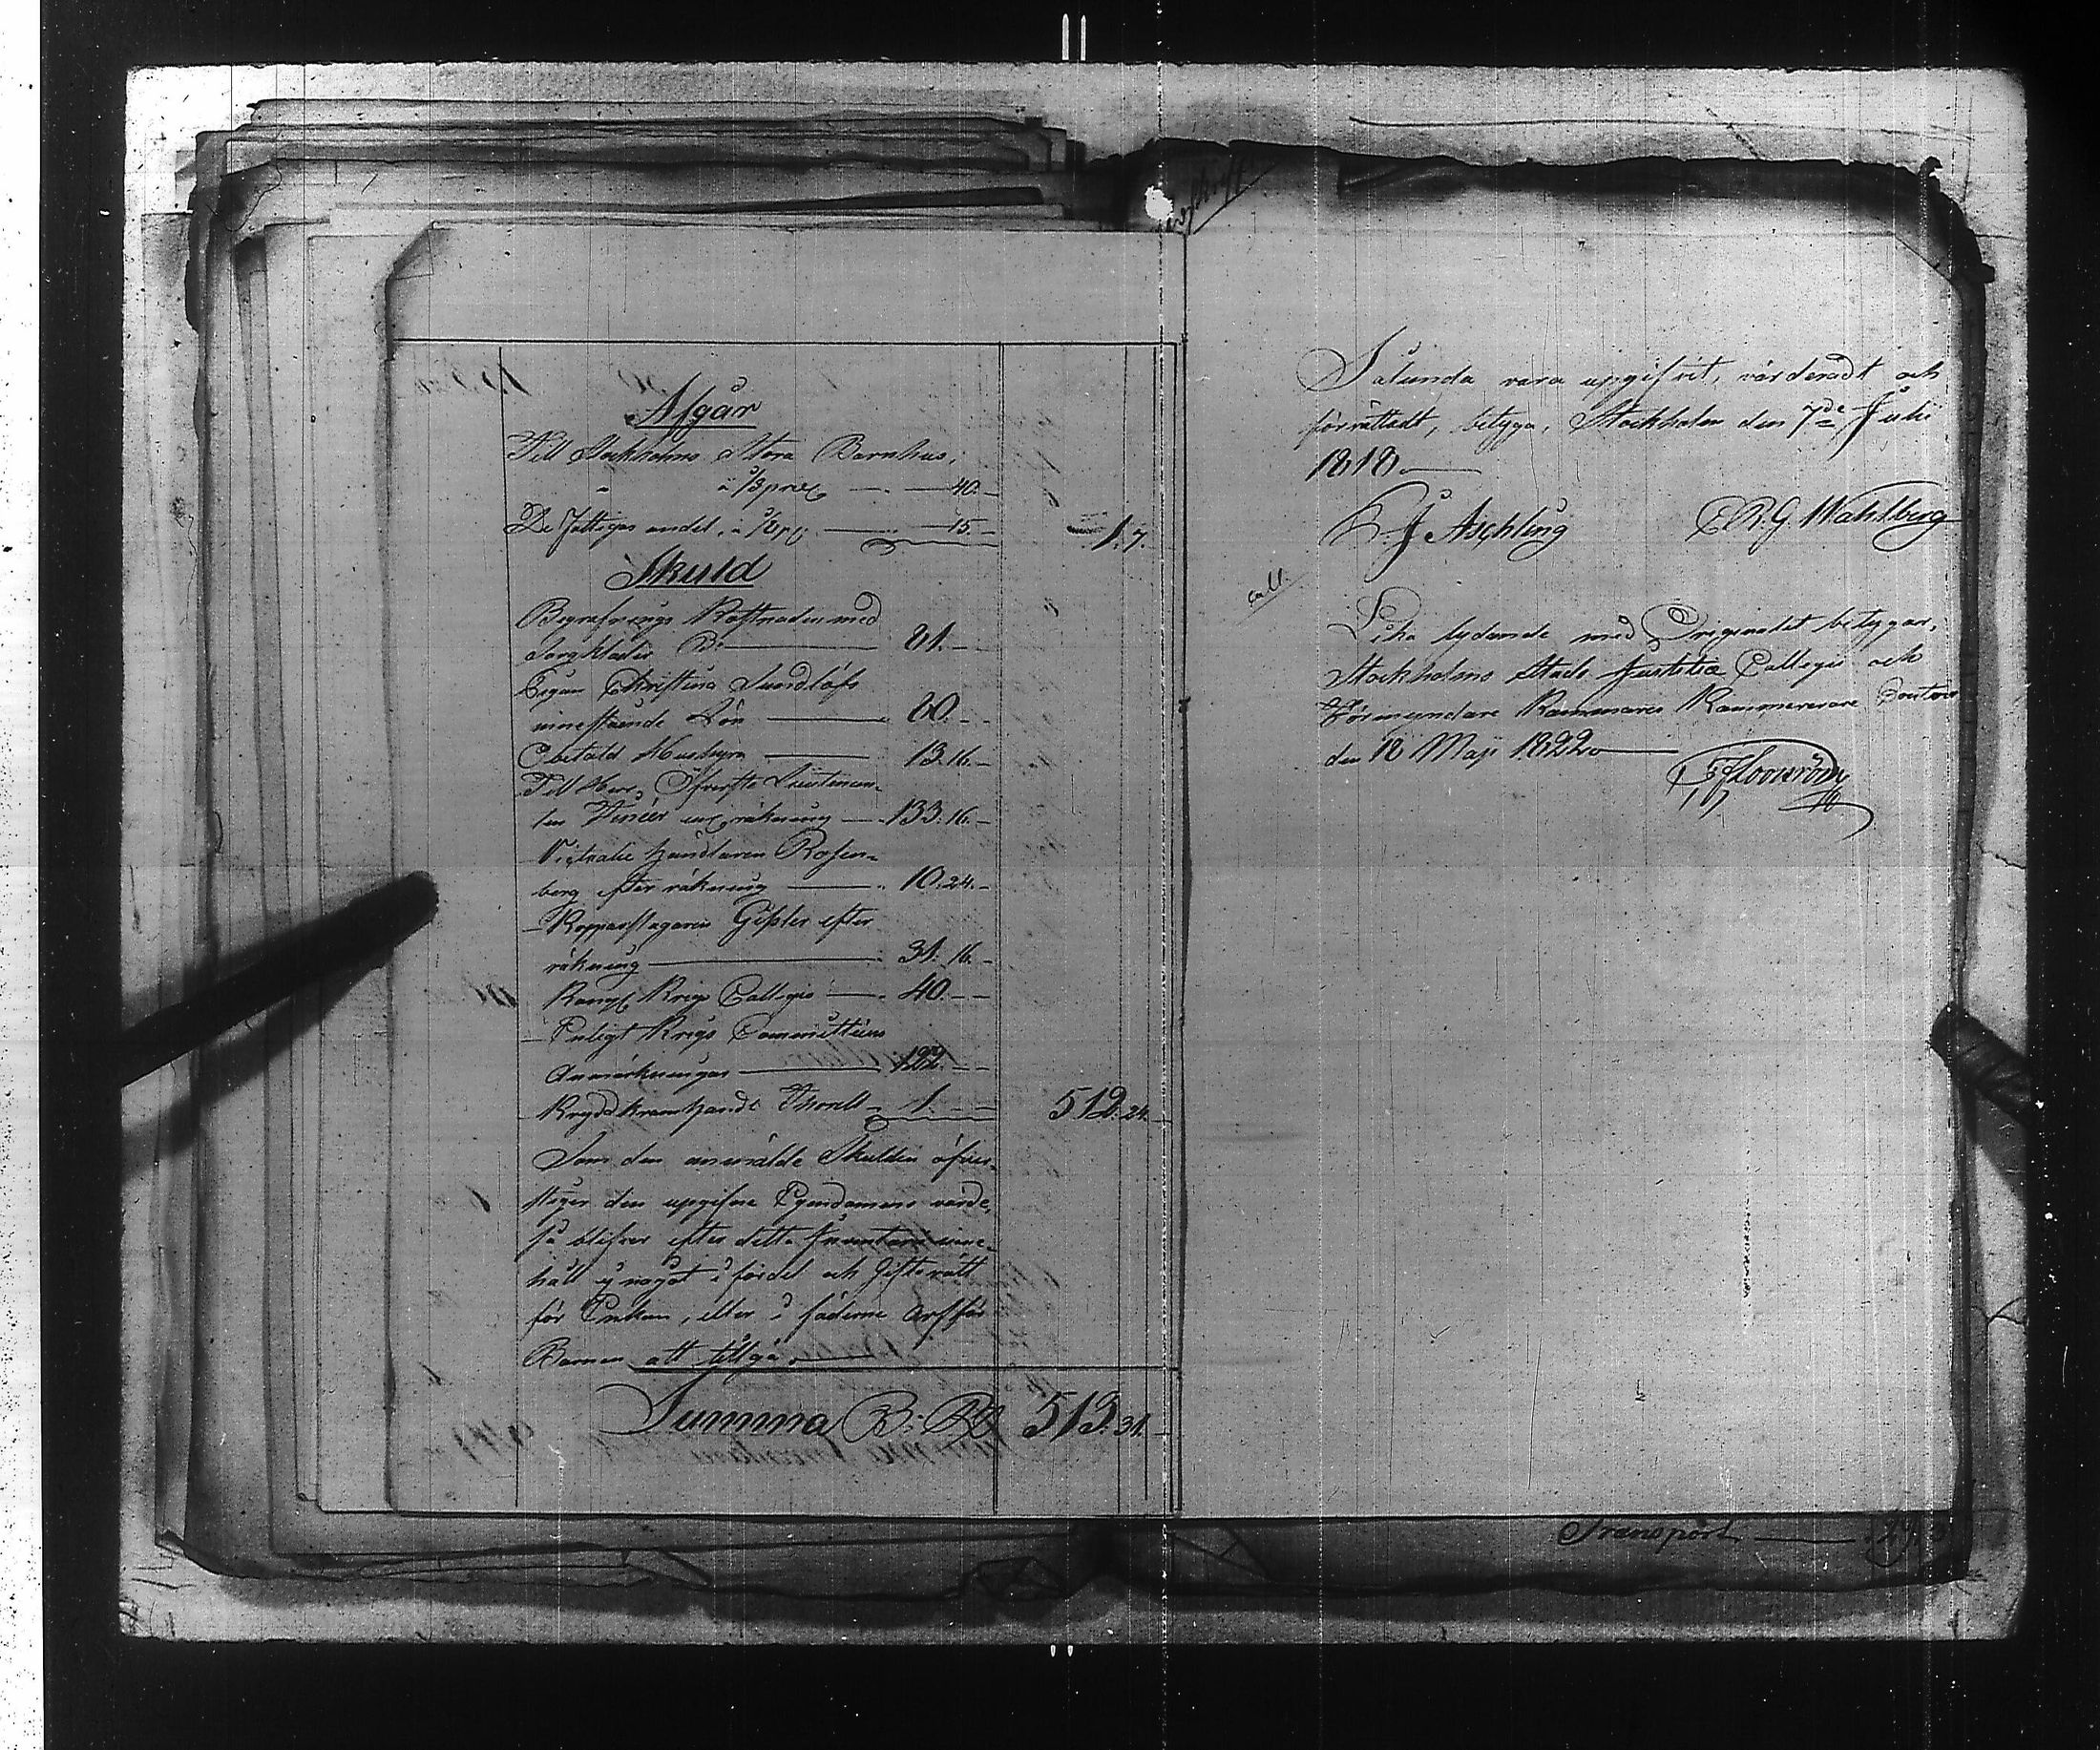 Afgår
Till Stockholms Stora Barnhus,
" à 1/3 prCt — 40. –
De Fattigas andel, à 1/8 pCt — 15. – 1. 7.
Skuld
Begrafnings Kostnaden med
Sorgkläder B:o — 81. –
Pigan Christina Sundlöfs
innestående Lön — 80. – –
Obetald Hushyra — 13. 16. –
Till Herr Öfverste Lieutenan-
ten räkning — 133. 16. –
Victualie Handlaren Rosen-
berg efter räkning — 10. 24. –
Kopparslagaren Gissler efter
räkning — 31. 16. –
Kongl. Krigs Collegio — 40. – –
Enligt Krigs Committéens
Anmärkningar — 122. – –
Kryddkramhandl. Thorell – 1. – – 512. 24. –
Som den anmälde Skulden öfver-
stiger den upgifne Egendomens värde,
så blifver efter detta Inventarii inne-
håll ej något i fördel och Giftorätt
för Enkan, eller i fäderne Arf för
Barnen att tillgå. —
Summa B:o RD 513. 31. –
Sålunda vara upgifvit, värderadt och
förrättadt, betyga, Stockholm den 7de Julii
1818. —
J Aschling C. R. G. Wahlberg
Lika lydande med Originalet betygar,
Stockholms Stads Justitiæ Collegii och
Förmyndare Kammares Kammererare Contoir
den 18 Maji 1822. —
coll.
Transport —